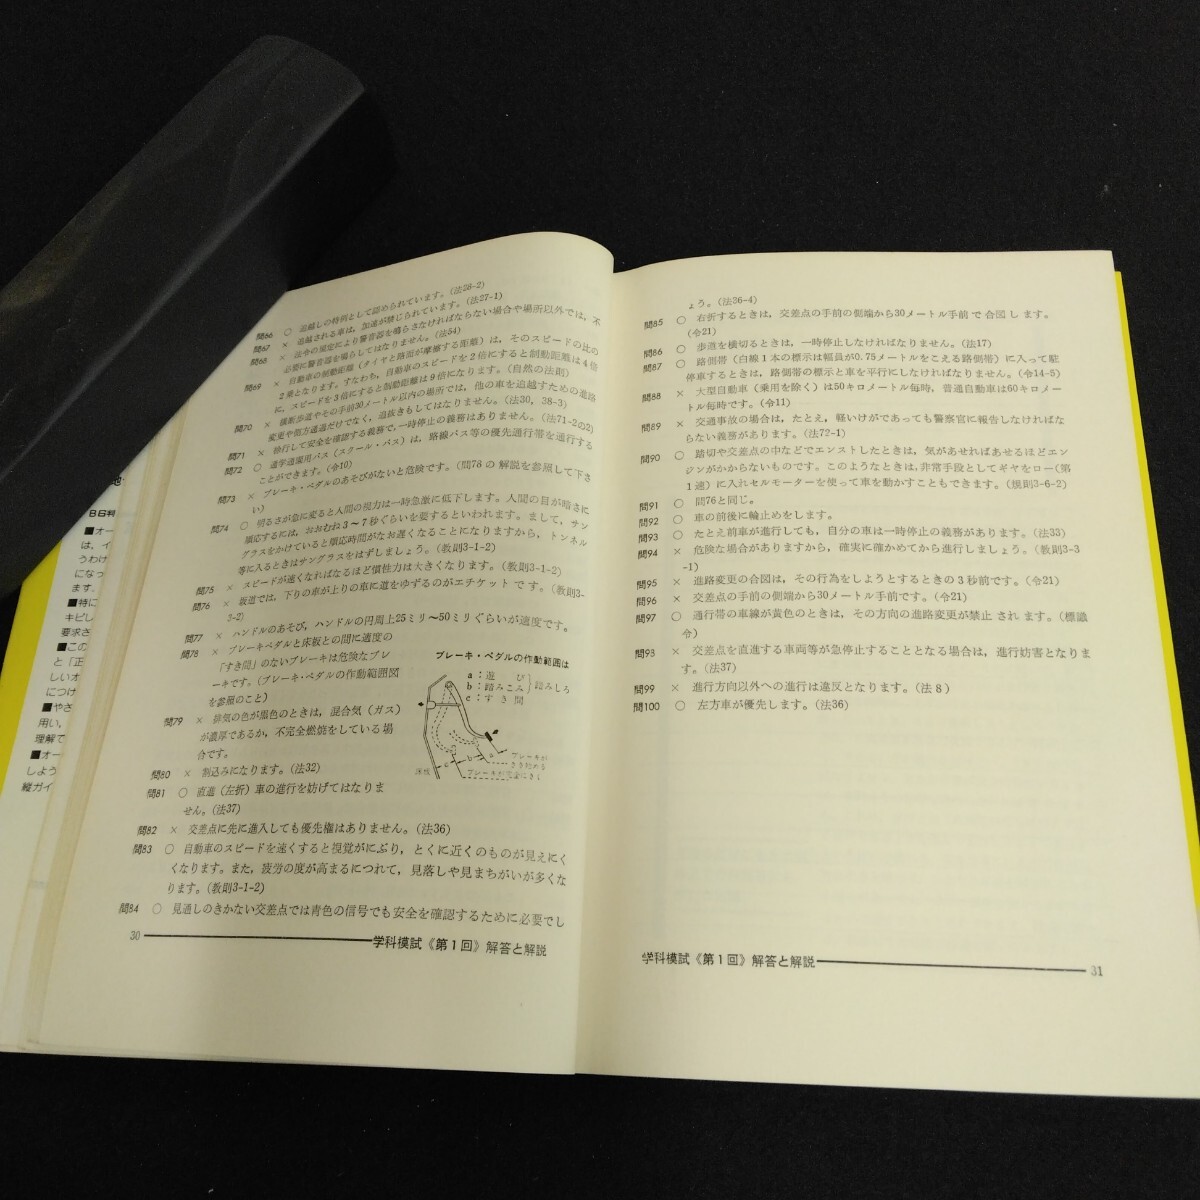 問66 ○ 追越しの特例として認められています。(法28-2)
問67 × 追越される車は，加速が禁じられています。(法27-1)
問68 × 法令の規定により警音器を鳴らさなければならない場合や場所以外では，不
必要に警音器を鳴らしてはなりません。(法54)
問69 × 自動車の制動距離（タイヤと路面が摩擦する距離）は，そのスピードの比の
2乗となります。すなわち，自動車のスピードを2倍にすると制動距離は4倍
に，スピードを3倍にすると制動距離は9倍になります。(自然の法則)
問70 × 横断歩道やその手前30メートル以内の場所では，他の車を追越すための進路
変更や側方通過だけでなく，追抜きもしてはなりません。(法30，38-3)
問71 × 徐行して安全を確認する義務で，一時停止の義務はありません。(法71-2の2)
問72 ○ 通学通園用バス（スクール・バス）は，路線バス等の優先通行帯を通行する
ことができます。(令10)
問73 × ブレーキ・ペダルのあそびがないと危険です。(問78の解説を参照して下さ
い)
問74 ○ 明るさが急に変ると人間の視力は一時急激に低下します。人間の目が暗さに
順応するには，おおむね3～7秒ぐらいを要するといわれます。まして，サン
グラスをかけていると順応時間がなお遅くなることになりますから，トンネル
等に入るときはサングラスをはずしましょう。(教則3-1-2)
問75 × スピードが速くなればなるほど慣性力は大きくなります。(教則3-1-2)
問76 × 坂道では，下りの車が上りの車に道をゆずるのがエチケットです。(教則3-
2-2)
問77 × ハンドルのあそび，ハンドルの円周上25ミリ～50ミリぐらいが適度です。
問78 × ブレーキペダルと床板との間に適度の
「すき間」のないブレーキは危険なブレ
ーキです。(ブレーキ・ペダルの作動範囲図
を参照のこと)
ブレーキ・ペダルの作動範囲は
a：遊び
b：踏みこみ
踏みしろ
c：すき間
c b a
床板
ブレーキが
きき始める
ブレーキが完全にきく
問79 × 排気の色が黒色のときは，混合気（ガス）
が濃厚であるか，不完全燃焼をしている場
合です。
問80 × 割込みになります。(法32)
問81 ○ 直進（左折）車の進行を妨げてはなりま
せん。(法37)
問82 × 交差点に先に進入しても優先権はありません。(法36)
問83 ○ 自動車のスピードを速くすると視覚がにぶり，とくに近くのものが見えにく
くなります。また，疲労の度が高まるにつれて，見落しや見まちがいが多くな
ります。(教則3-1-2)
問84 ○ 見通しのきかない交差点では青色の信号でも安全を確認するために必要でし
30 学科模試《第1回》解答と解説
ょう。(法36-4)
問85 ○ 右折するときは，交差点の手前の側端から30メートル手前で合図します。
(令21)
問86 ○ 歩道を横切るときは，一時停止しなければなりません。(法17)
問87 ○ 路側帯（白線1本の標示は幅員が0.75メートルをこえる路側帯）に入って駐
停車するときは，路側帯の標示と車を平行にしなければなりません。(令14-5)
問88 × 大型自動車（乗用を除く）は50キロメートル毎時，普通自動車は60キロメー
トル毎時です。(令11)
問89 × 交通事故の場合は，たとえ，軽いけがであっても警察官に報告しなければな
らない義務があります。(法72-1)
問90 ○ 路切や交差点の中などでエンストしたときは，気があせればあせるほどエン
ジンがかからないものです。このようなときは，非常手段としてギヤをロー（第
1速）に入れセルモーターを使って車を動かすこともできます。(規則3-6-2)
問91 ○ 問76と同じ。
問92 ○ 車の前後に輪止めをします。
問93 ○ たとえ前車が進行しても，自分の車は一時停止の義務があります。(法33)
問94 × 危険な場合がありますから，確実に確かめてから進行しましょう。(教則3-3
-1)
問95 × 進路変更の合図は，その行為をしようとするときの3秒前です。(令21)
問96 × 交差点の手前の側端から30メートル手前です。(令21)
問97 ○ 通行帯の車線が黄色のときは，その方向の進路変更が禁止されます。(標識
令)
問98 × 交差点を直進する車両等が急停止することとなる場合は，進行妨害となりま
す。(法37)
問99 × 進行方向以外への進行は違反となります。(法8)
問100 ○ 左方車が優先します。(法36)
学科模試《第1回》解答と解説 31
■オー
は，イ
うわけ
になっ
ます。
■特に
キビし
要求さ
■この
と「正
しいオ
につけ
■やさ
用い，
理解で
■オー
しよう
縦ガイ